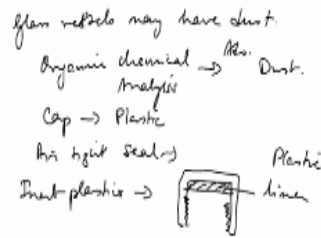 Glass vessels may have dust.
Organic chemical Analysis → Abs. Dust.
Cap → Plastic
Air tight seal →
Inert plastics → Plastic liner